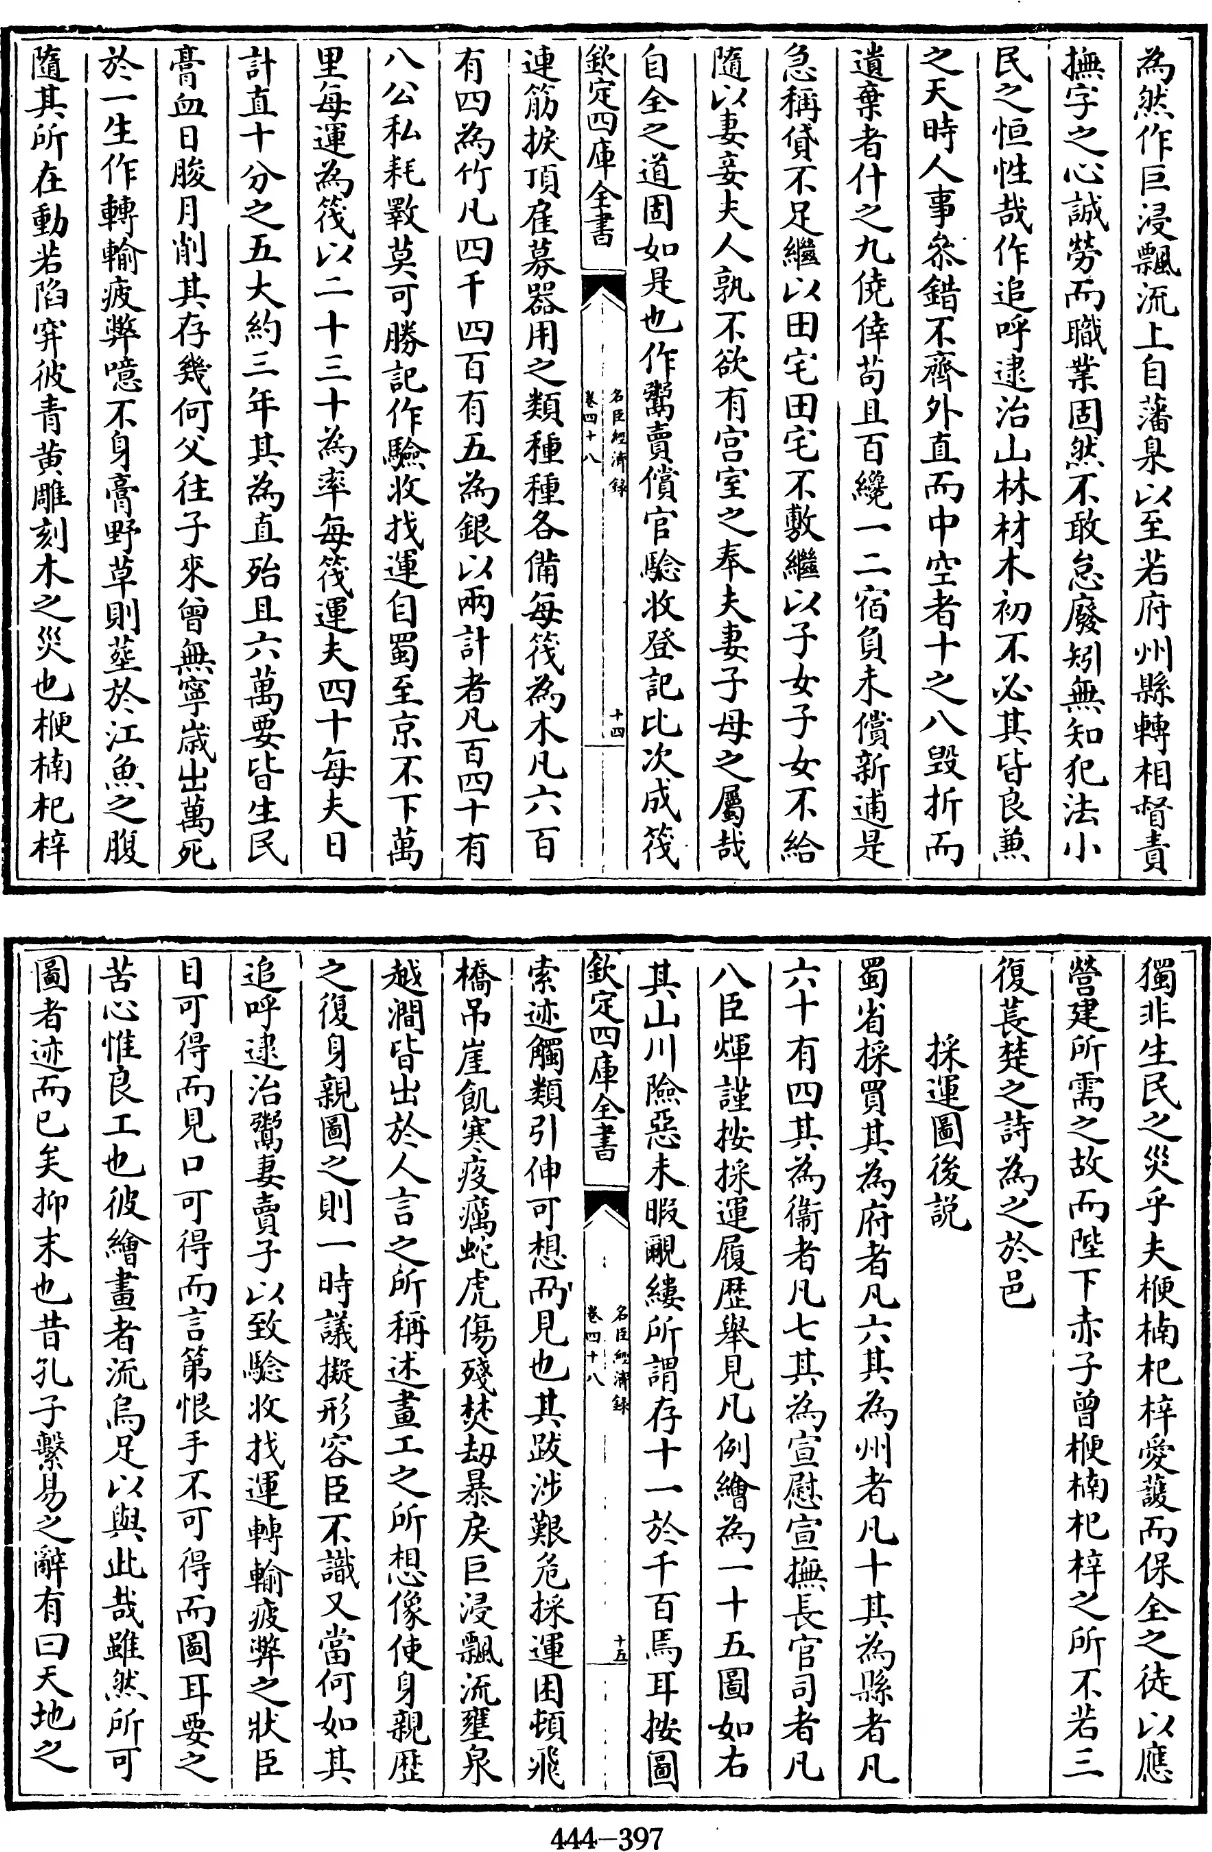 為然作巨浸飄流上自藩臬以至若府州縣轉相督責
撫字之心誠勞而職業固然不敢怠廢矧無知犯法小
民之恒性哉作追呼逮治山林材木初不必其皆良兼
之天時人事叅錯不齊外直而中空者十之八毀折而
遺棄者什之九僥倖苟且百纔一二宿負未償新逋是
急稱貸不足繼以田宅田宅不敷繼以子女子女不給
隨以妻妾夫人孰不欲有宫室之奉夫妻子母之屬哉
自全之道固如是也作鬻賣償官驗收登記比次成筏
欽定四庫全書
名臣經濟録
卷四十八
十四
連筋捩頂雇募器用之類種種各備每筏為木凡六百
有四為竹凡四千四百有五為銀以兩計者凡百四十有
八公私耗斁莫可勝記作驗收找運自蜀至京不下萬
里每運為筏以二十三十為率每筏運夫四十每夫日
計直十分之五大約三年其為直殆且六萬要皆生民
膏血日朘月削其存幾何父往子來曾無寧歳出萬死
於一生作轉輸疲弊噫不身膏野草則塟於江魚之腹
隨其所在動若陷穽彼青黄雕刻木之災也楩楠杞梓
獨非生民之災乎夫楩楠杞梓愛護而保全之徒以應
營建所需之故而陛下赤子曾楩楠杞梓之所不若三
復萇楚之詩為之於邑
採運圖後説
蜀省採買其為府者凡六其為州者凡十其為縣者凡
六十有四其為衞者凡七其為宣慰宣撫長官司者凡
八臣煇謹按採運履歴舉見凡例繪為一十五圖如右
其山川險惡未暇覼縷所謂存十一於千百焉耳按圖
欽定四庫全書
名臣經濟録
卷四十八
十五
索迹觸類引伸可想而見也其跋涉艱危採運困頓飛
橋吊崖飢寒疫癘蛇虎傷殘焚刼暴戾巨浸飄流壅泉
越澗皆出於人言之所稱述畫工之所想像使身親歴
之復身親圖之則一時議擬形容臣不識又當何如其
追呼逮治鬻妻賣子以致驗收找運轉輸疲弊之狀臣
目可得而見口可得而言第恨手不可得而圖耳要之
苦心惟良工也彼繪畫者流烏足以與此哉雖然所可
圖者迹而已矣抑末也昔孔子繫易之辭有曰天地之
444-397